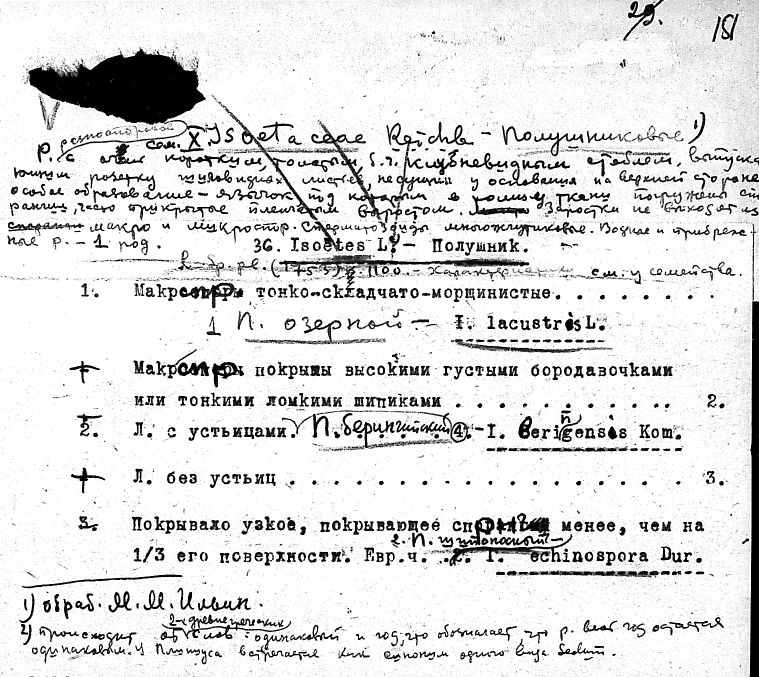 29. 181
разноспоровой
сем. X. Isoetaceae Reichb — Полушниковые 1)
р. с коротким толстым б.ч. клубневидным стеблем, выпуска-
ющим розетку шиловидных листьев, несущих у основания на верхней стороне
особое образование — язычок, под которым в ткани погружены
часто прикрытые пленчатым выростом. Заростки не выходят из
макро и микроспор. Сперматозоиды многожгутиковые. Водные и прибреж-
ные р. — 1 род.
36. Isoetes L. — Полушник.
L. Sp. pl. (1753) 1100. — Характеристику см. у семейства.
1. Макроспоры тонко-складчато-морщинистые. . . . . . . .
1 П. озерной — I. lacustris L.
+ Макроспоры покрыты высокими густыми бородавочками
или тонкими ломкими шипиками . . . . . . . . . . . 2.
2. Л. с устьицами. П. берингийский 4. — I. beringensis Kom.
+ Л. без устьиц . . . . . . . . . . . . . . . . . . 3.
3. Покрывало узкое, покрывающее менее, чем на
2. П.
1/3 его поверхности. Евр.ч. . 2. I. echinospora Dur.
1) обраб. М. М. Ильин.
2-х древнегреческих
2) происходит слов: одинаковый и год, что обозначает, что р. весь год остается
одинаковым. У Плиниуса встречается как синоним одного вида Sedum.